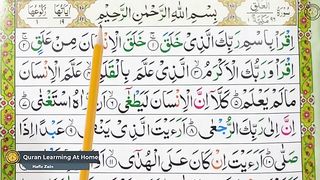 بِسْمِ اللّٰهِ الرَّحْمٰنِ الرَّحِيْمِ
اِقْرَاْ بِاسْمِ رَبِّكَ الَّذِيْ خَلَقَ ۝١ خَلَقَ الْاِنْسَانَ مِنْ عَلَقٍ ۝٢
اِقْرَاْ وَرَبُّكَ الْاَكْرَمُ ۝٣ الَّذِيْ عَلَّمَ بِالْقَلَمِ ۝٤ عَلَّمَ الْاِنْسَانَ
مَا لَمْ يَعْلَمْ ۝٥ كَلَّآ اِنَّ الْاِنْسَانَ لَيَطْغٰٓى ۝٦ اَنْ رَّاٰهُ اسْتَغْنٰى ۝٧
اِنَّ اِلٰى رَبِّكَ الرُّجْعٰى ۝٨ اَرَءَيْتَ الَّذِيْ يَنْهٰى ۝٩ عَبْدًا اِذَا
صَلّٰى ۝١٠ اَرَءَيْتَ اِنْ كَانَ عَلَى الْهُدٰٓى ۝١١
Quran Learning At Home
Hafiz Zain